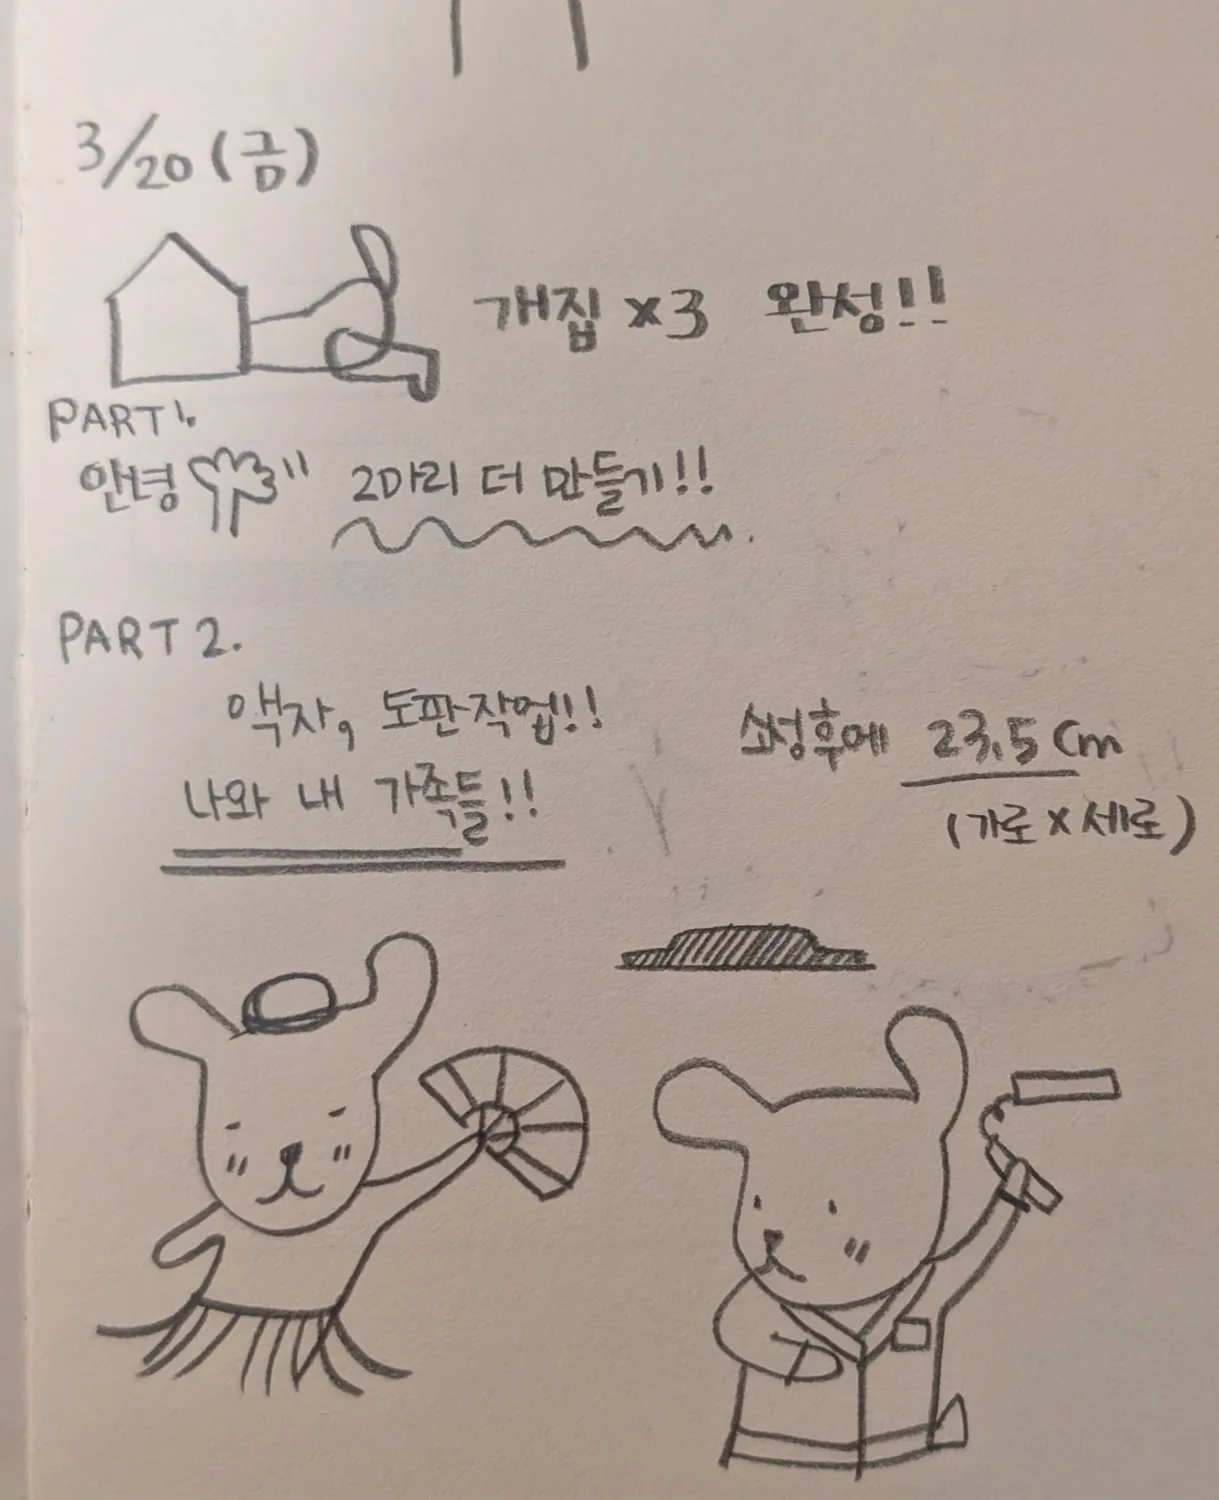 3/20 (금)
개집 x3 완성!!
PART 1.
안녕 2마리 더 만들기!!
PART 2.
액자, 도판작업!!
나와 내 가족들!!
소성후에 23.5 cm
(가로 x 세로)